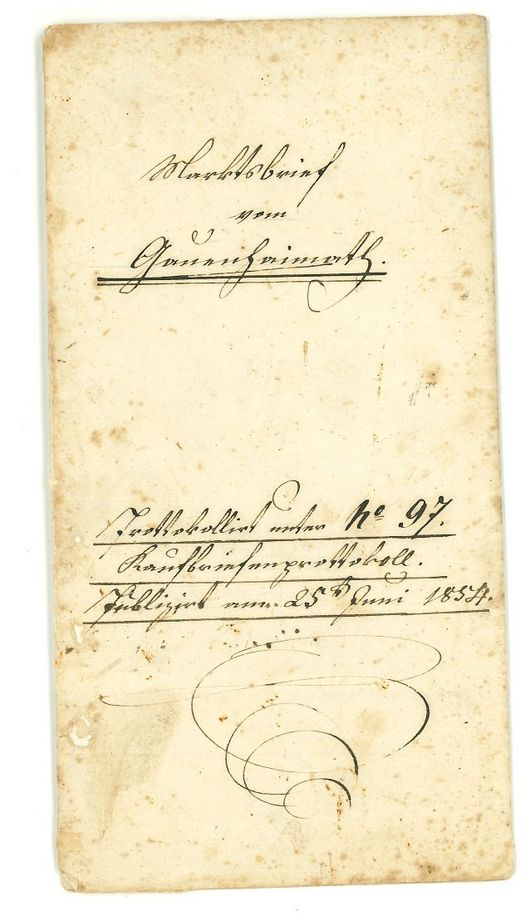 Marktsbrief
vom
Gauenhaimath.
Prottokollirt unter No 97.
Kaufbriefenprottokoll.
Publizirt am 25t Juni 1854.